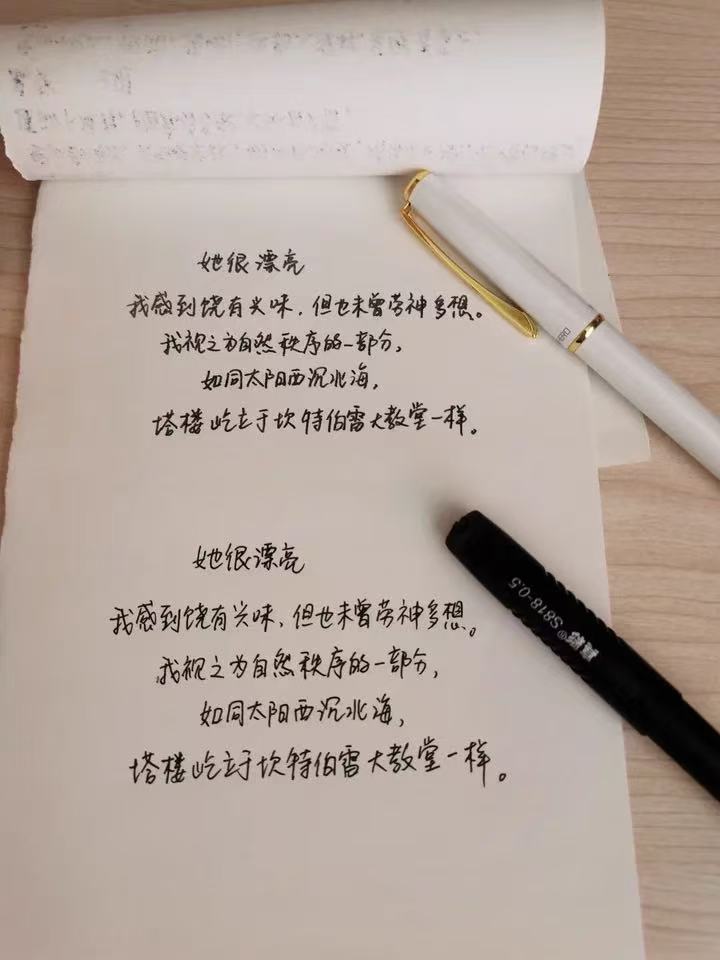 她很漂亮
我感到饶有兴味,但也未曾劳神多想。
我视之为自然秩序的一部分,
如同太阳西沉北海,
塔楼屹立于坎特伯雷大教堂一样。
她很漂亮
我感到饶有兴味,但也未曾劳神多想。
我视之为自然秩序的一部分,
如同太阳西沉北海,
塔楼屹立于坎特伯雷大教堂一样。
S818-0.5